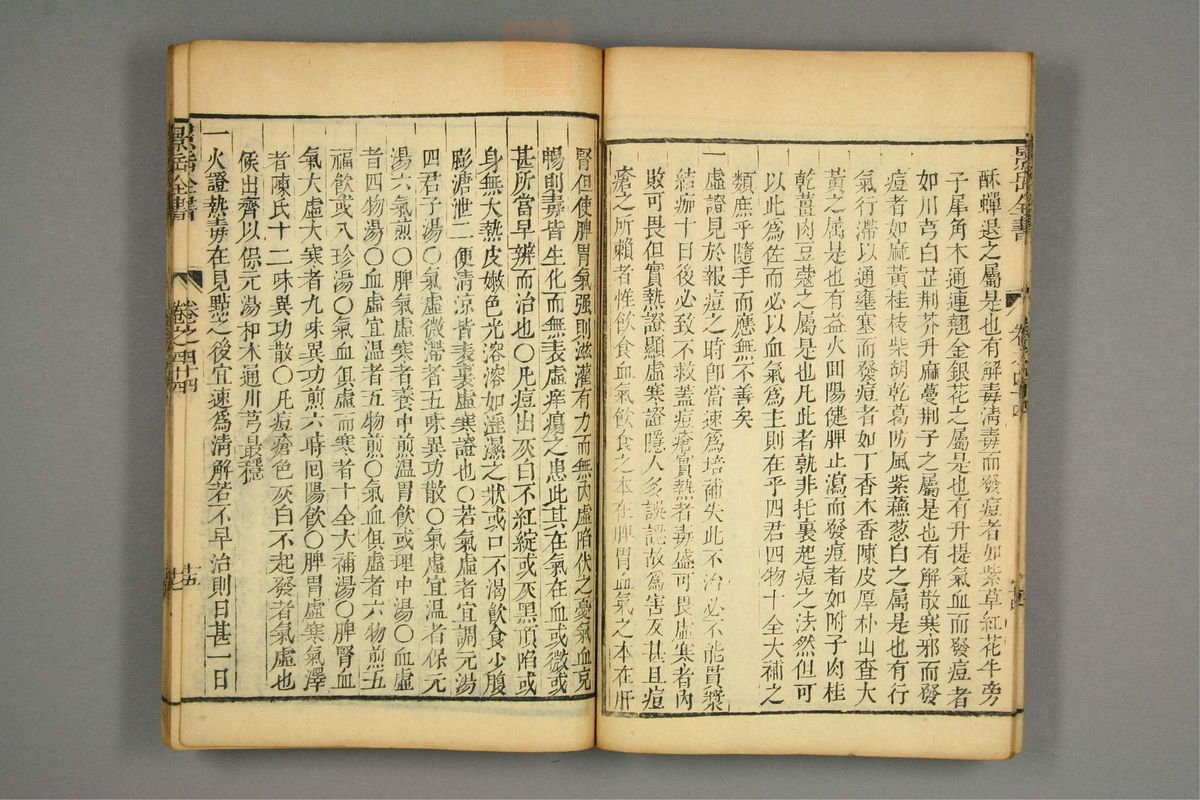 酥蟬退之屬是也有解毒清毒而發痘者如紫草紅花牛蒡
子犀角木通連翹金銀花之屬是也有升提氣血而發痘者
如川芎白芷荆芥升麻蔓荆子之屬是也有解散寒邪而發
痘者如麻黃桂枝柴胡乾葛防風紫蘇葱白之屬是也有行
氣行滯以通壅塞而發痘者如丁香木香陳皮厚朴山查大
黃之属是也有益火囘陽健脾止瀉而發痘者如附子肉桂
乾薑肉豆蔻之屬是也凡此者孰非托裏起痘之法然但可
以此爲佐而必以血氣爲主則在乎四君四物十全大補之
類庶乎隨手而應無不善矣
一虛證見於報痘之時即當速爲培補失此不治必不能貫漿
結痂十日後必致不救蓋痘瘡實熱者毒盛可畏虛寒者內
敗可畏但實熱證顯虛寒證隱人多誤認故爲害反甚且痘
瘡之所賴者惟飲食血氣飲食之本在脾胃血氣之本在肝
腎但使脾胃氣强則滋灌有力而無內虛陷伏之憂氣血克
暢則毒皆生化而無表虛痒瘍之患此其在氣在血或微或
甚所當早辨而治也〇凡痘出灰白不紅綻或灰黑頂陷或
身無大熱皮嫩色光溶溶如淫濕之狀或口不渴飲食少腹
膨溏泄二便清涼皆表裏虛寒證也〇若氣虛者宜調元湯
四君子湯〇氣虛微滯者五味異功散〇氣虛宜温者保元
湯六氣煎〇脾氣虛寒者養中煎温胃飲或理中湯〇血虛
者四物湯〇血虛宜温者五物煎〇氣血俱虛者六物煎五
福飲或八珍湯〇氣血俱虛而寒者十全大補湯〇脾腎血
氣大虛大寒者九味異功煎六時囘陽飲〇脾胃虛寒氣滯
者陳氏十二味異功散〇凡痘瘡色灰白不起發者氣虛也
候出齊以保元湯加木通川芎最穩
一火證熱毒在見點之後宜速爲清解若不早治則日甚一日
景岳全書
卷之四十四